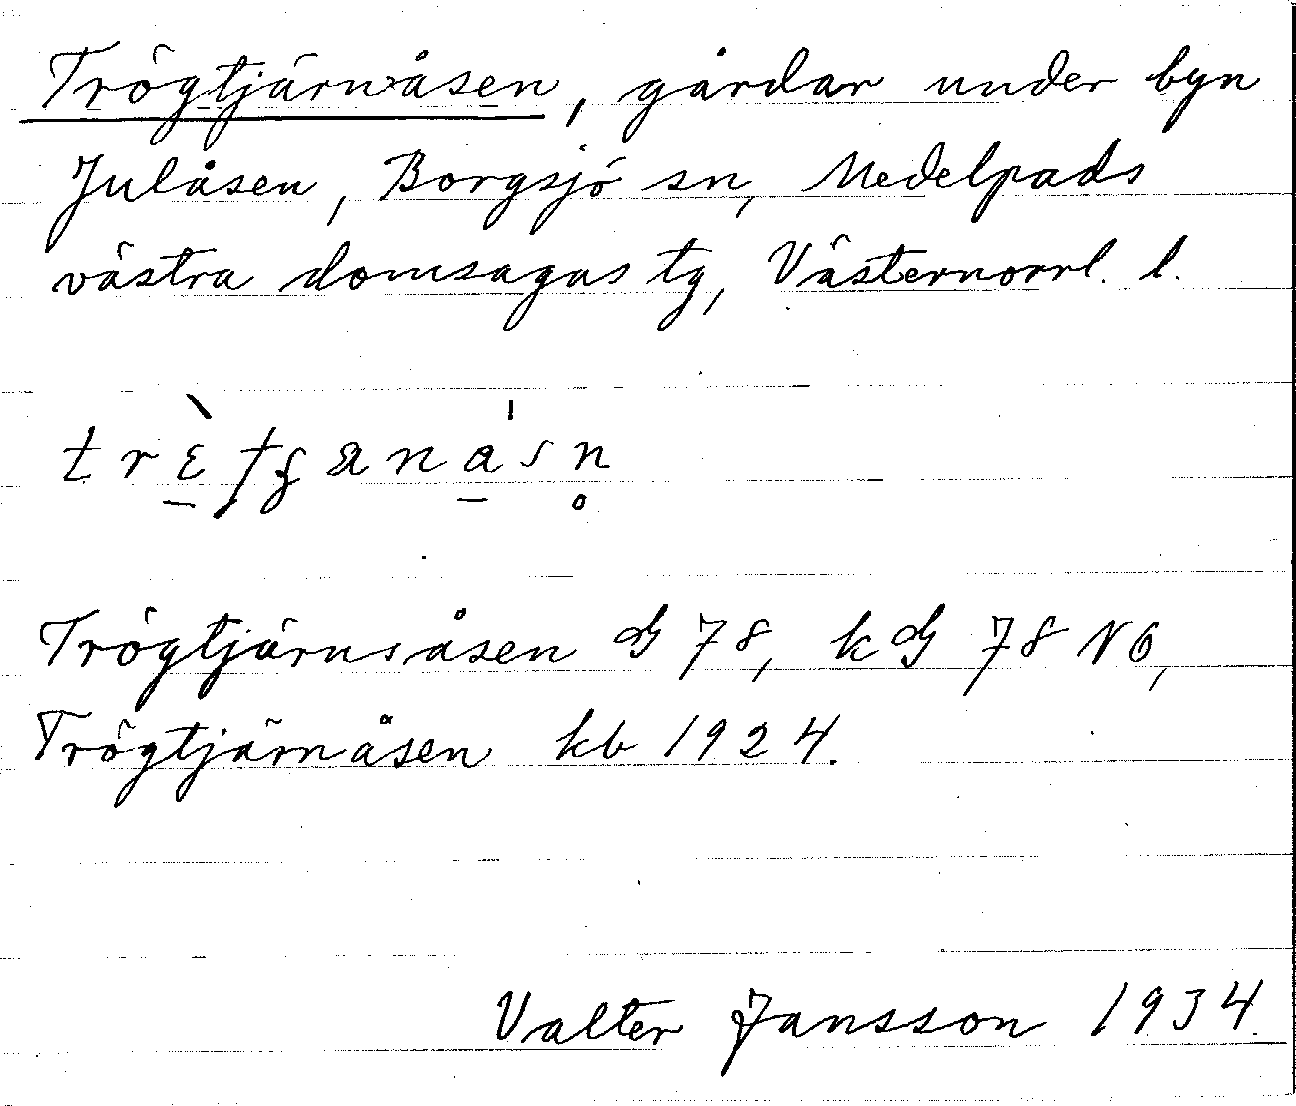 Trögtjärnåsen, gårdar under byn
Julåsen, Borgsjö sn, Medelpads
västra domsagas tg, Västernorrl. l.
Trögtjärnsåsen G 78, kG 78 NO,
Trögtjärnåsen kb 1924.
Valter Jansson 1934.